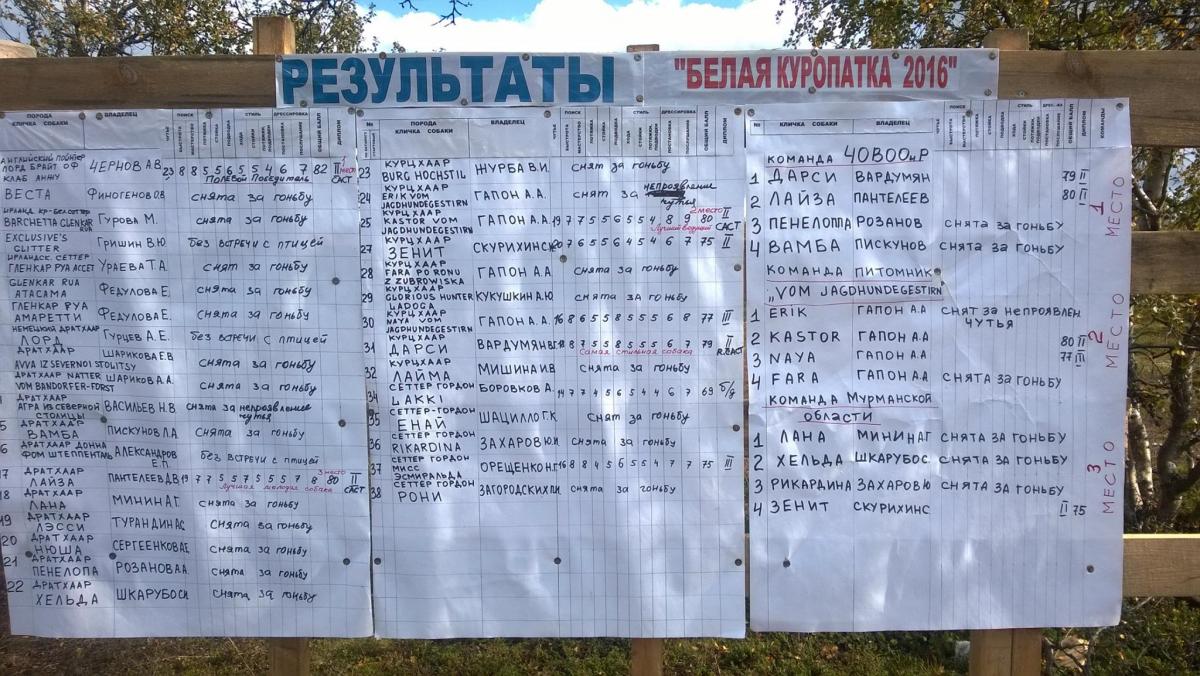 РЕЗУЛЬТАТЫ
"БЕЛАЯ КУРОПАТКА 2016"
ПОРОДА
КЛИЧКА СОБАКИ
ВЛАДЕЛЕЦ
ЧУТЬЕ
ПОИСК
СТИЛЬ
ДРЕССИРОВКА
ОБЩИЙ БАЛЛ
ДИПЛОМ
АНГЛИЙСКИЙ ПОЙНТЕР
ЛОРД БРАЙТ ОФ
КЛАБ АННУ
ЧЕРНОВ А.В. 23 8 8 5 5 6 5 5 4 6 7 82 II 1 место
Полевой Победитель САСТ
ВЕСТА ФИНОГЕНОВ О.В снята за гоньбу
BARCHETTA GLENKAR ГУРОВА М. снята за гоньбу
EXCLUSIVE'S
GLITTER ГРИШИН В.Ю без встречи с птицей
ИРЛАНДСК. СЕТТЕР
ГЛЕНКАР РУА АССЕТ УРАЕВА Т.А. снят за гоньбу
GLENKAR RUA
АТАСАМА ФЕДУЛОВА Е. снята за гоньбу
ГЛЕНКАР РУА
АМАРЕТТИ ФЕДУЛОВА Е. снята за гоньбу
НЕМЕЦКИЙ ДРАТХААР
ЛОРД ГУРЦЕВ А.Е. без встречи с птицей
ДРАТХААР
AVVA IZ SEVERNOI STOLITSY ШАРИКОВА Е.В снята за гоньбу
ДРАТХААР NATTER
VOM BANDORFER-FORST ШАРИКОВ А.А. снята за гоньбу
ДРАТХААР
АГРА ИЗ СЕВЕРНОЙ
СТОЛИЦЫ ВАСИЛЬЕВ Н.В снята за непроявление чутья
ДРАТХААР
ВАМБА ПИСКУНОВ Л.А. снята за гоньбу
ДРАТХААР ДОННА
ФОМ ШТЕППЕНТАЛЬ АЛЕКСАНДРОВ Е.П. без встречи с птицей
17 ДРАТХААР
ЛАЙЗА ПАНТЕЛЕЕВ Д.В 19 7 7 5 5 7 5 5 7 8 80 II 3 место
Лучшая молодая собака САСТ
18 ДРАТХААР
ЛАНА МИНИН А.Г. снята за гоньбу
19 ДРАТХААР
ЛЭССИ ТУРАНДИН А.С снята за гоньбу
20 ДРАТХААР
НЮША СЕРГЕЕНКОВ А.Е снята за гоньбу
21 ДРАТХААР
ПЕНЕЛОПА РОЗАНОВ А.А. снята за гоньбу
22 ДРАТХААР
ХЕЛЬДА ШКАРУБО С.И снята за гоньбу
№
ПОРОДА
КЛИЧКА СОБАКИ
ВЛАДЕЛЕЦ
ЧУТЬЕ
ПОИСК
СТИЛЬ
ДРЕССИРОВКА
ОБЩИЙ БАЛЛ
ДИПЛОМ
23 КУРЦХААР
BURG HOCHSTIL ЖУРБА В.И. снят за гоньбу
24 КУРЦХААР
ERIK VOM
JAGDHUNDEGESTIRN ГАПОН А.А. снят за непроявление чутья
25 КУРЦХААР
KASTOR VOM
JAGDHUNDEGESTIRN ГАПОН А.А. 19 7 7 5 5 6 5 5 4 8 9 80 II 2 место
Лучший ведущий САСТ
27 КУРЦХААР
ЗЕНИТ СКУРИХИН С.К 20 7 6 5 5 6 5 4 4 6 7 75 II
28 КУРЦХААР
FARA PO RONU
Z ZUBROWISKA ГАПОН А.А. снята за гоньбу
29 КУРЦХААР
GLORIOUS HUNTER
LADOGA КУКУШКИН А.Ю. снята за гоньбу
30 КУРЦХААР
NAYA VOM
JAGDHUNDEGESTIRN ГАПОН А.А. 16 8 6 5 5 8 5 5 5 6 8 77 III
31 КУРЦХААР
ДАРСИ ВАРДУМЯН В.Г. 18 8 7 5 5 8 5 5 6 7 79 II
Самая стильная собака R.САСТ
32 КУРЦХААР
ЛАЙМА МИШИН А.В снята за гоньбу
34 СЕТТЕР ГОРДОН
LAKKI БОРОВКОВ А. 14 7 7 4 5 6 5 5 4 7 69 б/д
35 СЕТТЕР-ГОРДОН
ЕНАЙ ШАЦИЛЛО Г.К. Снят за гоньбу
36 СЕТТЕР ГОРДОН
RIKARDINA ЗАХАРОВ Ю.И снята за гоньбу
37 СЕТТЕР ГОРДОН
МИСС
ЭСМИРАЛЬДА ОРЕЩЕНКО Н.Г. 16 8 8 4 5 6 5 5 4 7 7 75 III
38 СЕТТЕР ГОРДОН
РОНИ ЗАГОРОДСКИХ П.И. снята за гоньбу
№
КЛИЧКА СОБАКИ
ВЛАДЕЛЕЦ
ЧУТЬЕ
ПОИСК
СТИЛЬ
ОБЩИЙ БАЛЛ
ДИПЛОМ
КОМАНДЫ
КОМАНДА
1 ДАРСИ ВАРДУМЯН 79 II
2 ЛАЙЗА ПАНТЕЛЕЕВ 80 II
3 ПЕНЕЛОППА РОЗАНОВ снята за гоньбу
4 ВАМБА ПИСКУНОВ снята за гоньбу
1 МЕСТО
КОМАНДА ПИТОМНИК
„VOM JAGDHUNDEGESTIRN"
1 ERIK ГАПОН А.А снят за непроявлен чутья
2 KASTOR ГАПОН А.А 80 II
3 NAYA ГАПОН А.А 77 III
4 FARA ГАПОН А.А снята за гоньбу
2 МЕСТО
КОМАНДА Мурманской
области
1 ЛАНА МИНИН А.Г снята за гоньбу
2 ХЕЛЬДА ШКАРУБО С. снята за гоньбу
3 РИКАРДИНА ЗАХАРОВ Ю снята за гоньбу
4 ЗЕНИТ СКУРИХИН С II 75
3 МЕСТО